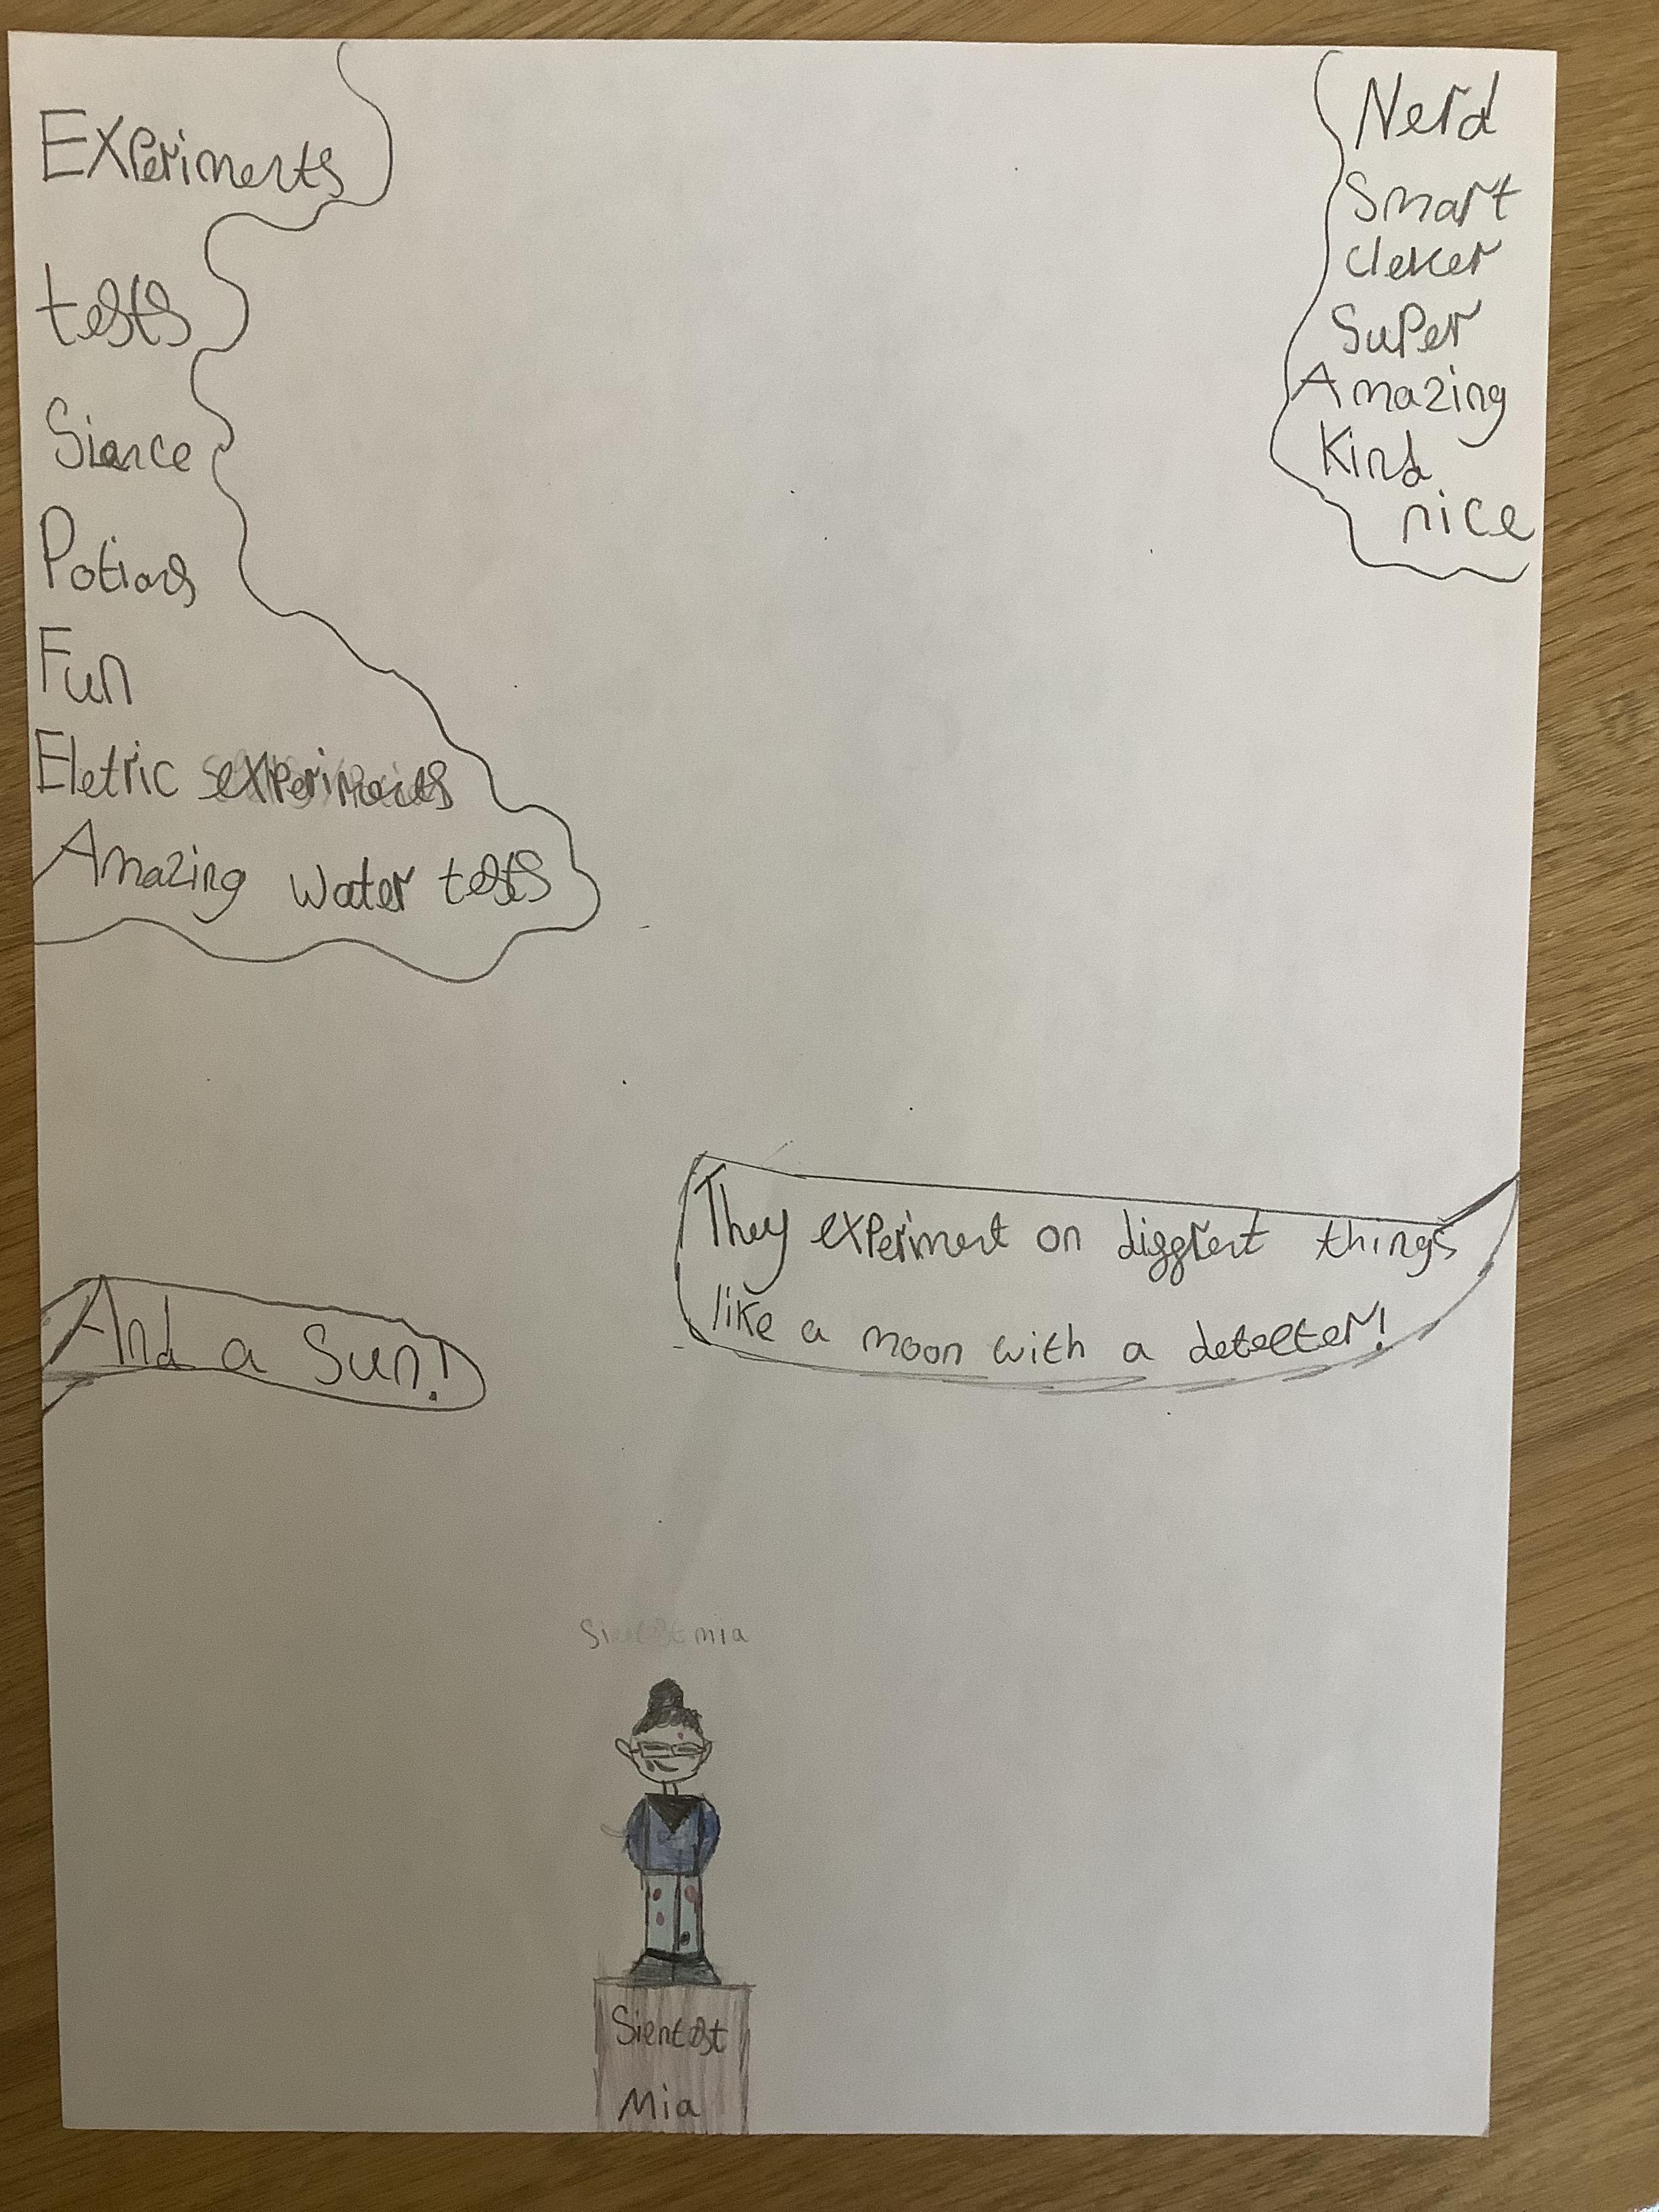 Experiments
tests
Siance
Potions
Fun
Eletric experiments
Amazing water tests
Nerd
Smart
clever
Super
Amazing
Kind
nice
They experiment on diggrent things
like a moon with a detecter!
And a Sun!
mia
Sientist
Mia